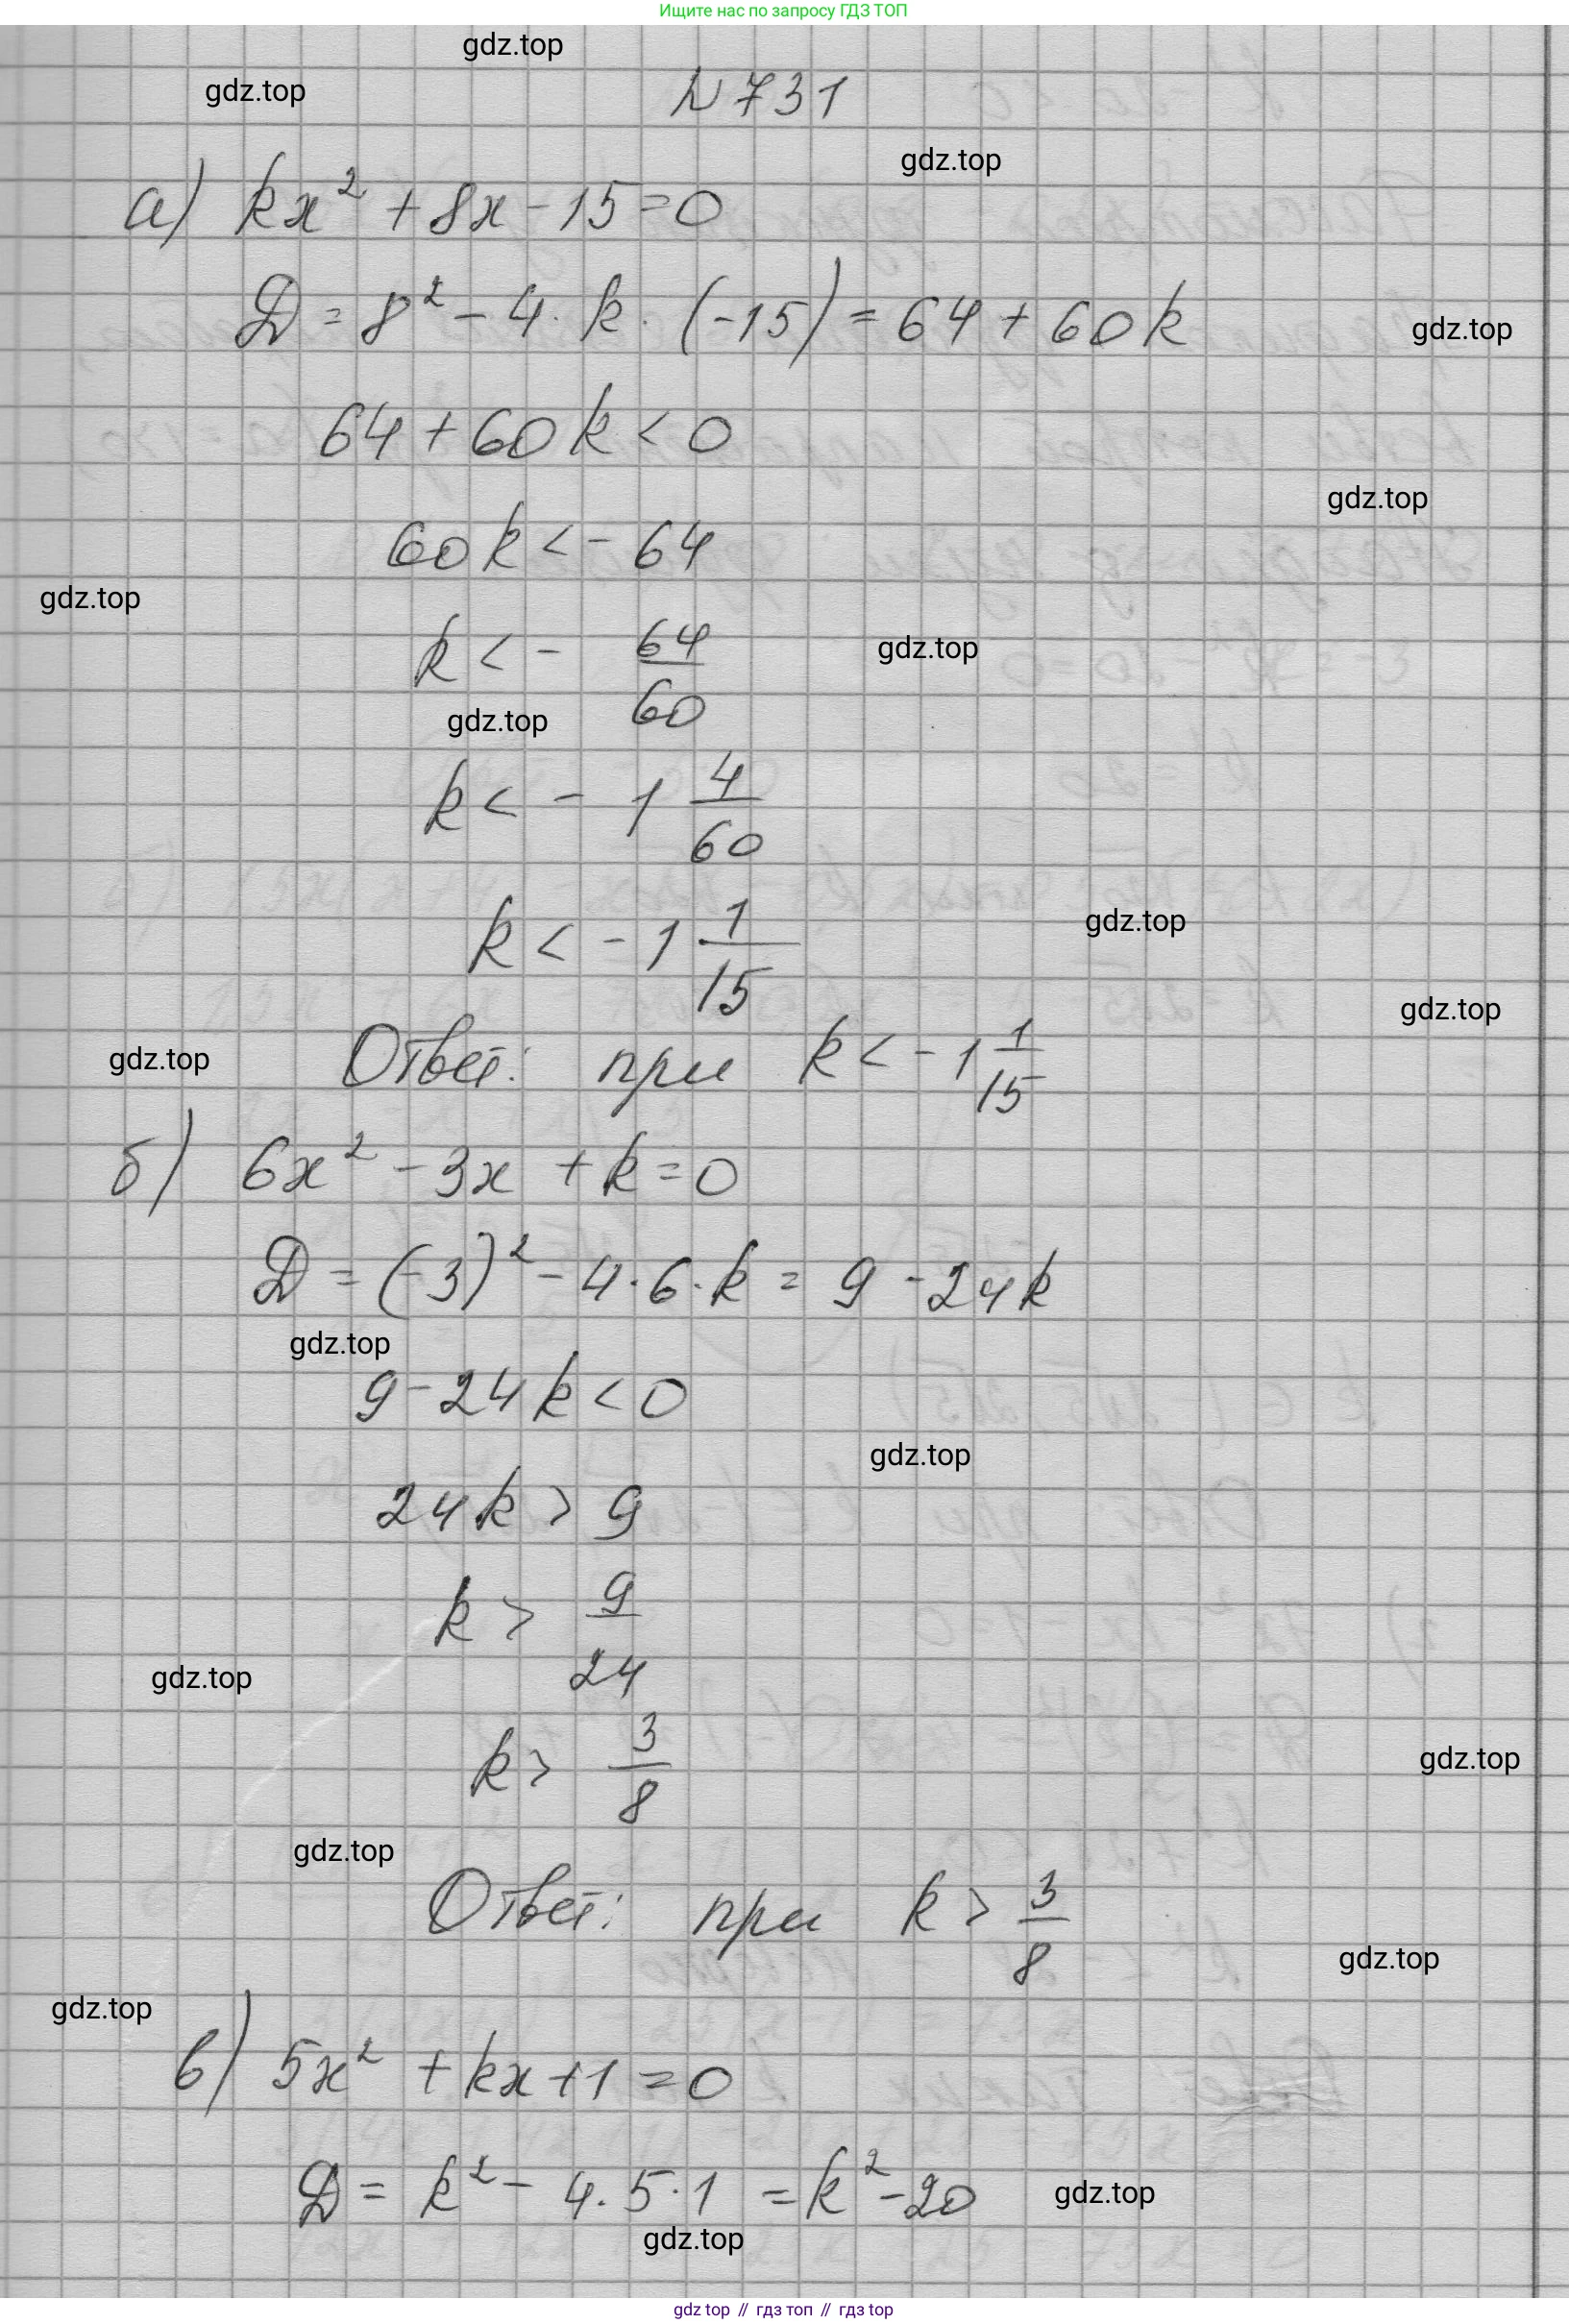 Ищите нас по запросу ГДЗ ТОП
gdz.top
gdz.top
№731
gdz.top
а) kx² + 8x - 15 = 0
D = 8² - 4 · k · (-15) = 64 + 60k
gdz.top
64 + 60k < 0
gdz.top
60k < - 64
gdz.top
k < - 64/60
gdz.top
gdz.top
k < - 1 4/60
k < - 1 1/15
gdz.top
gdz.top
Ответ: при k < - 1 1/15
gdz.top
б) 6x² - 3x + k = 0
D = (-3)² - 4 · 6 · k = 9 - 24k
gdz.top
9 - 24k < 0
gdz.top
24k > 9
k > 9/24
gdz.top
k > 3/8
gdz.top
gdz.top
Ответ: при k > 3/8
gdz.top
gdz.top
в) 5x² + kx + 1 = 0
D = k² - 4 · 5 · 1 = k² - 20
gdz.top
gdz.top
gdz top // гдз топ // гдз top